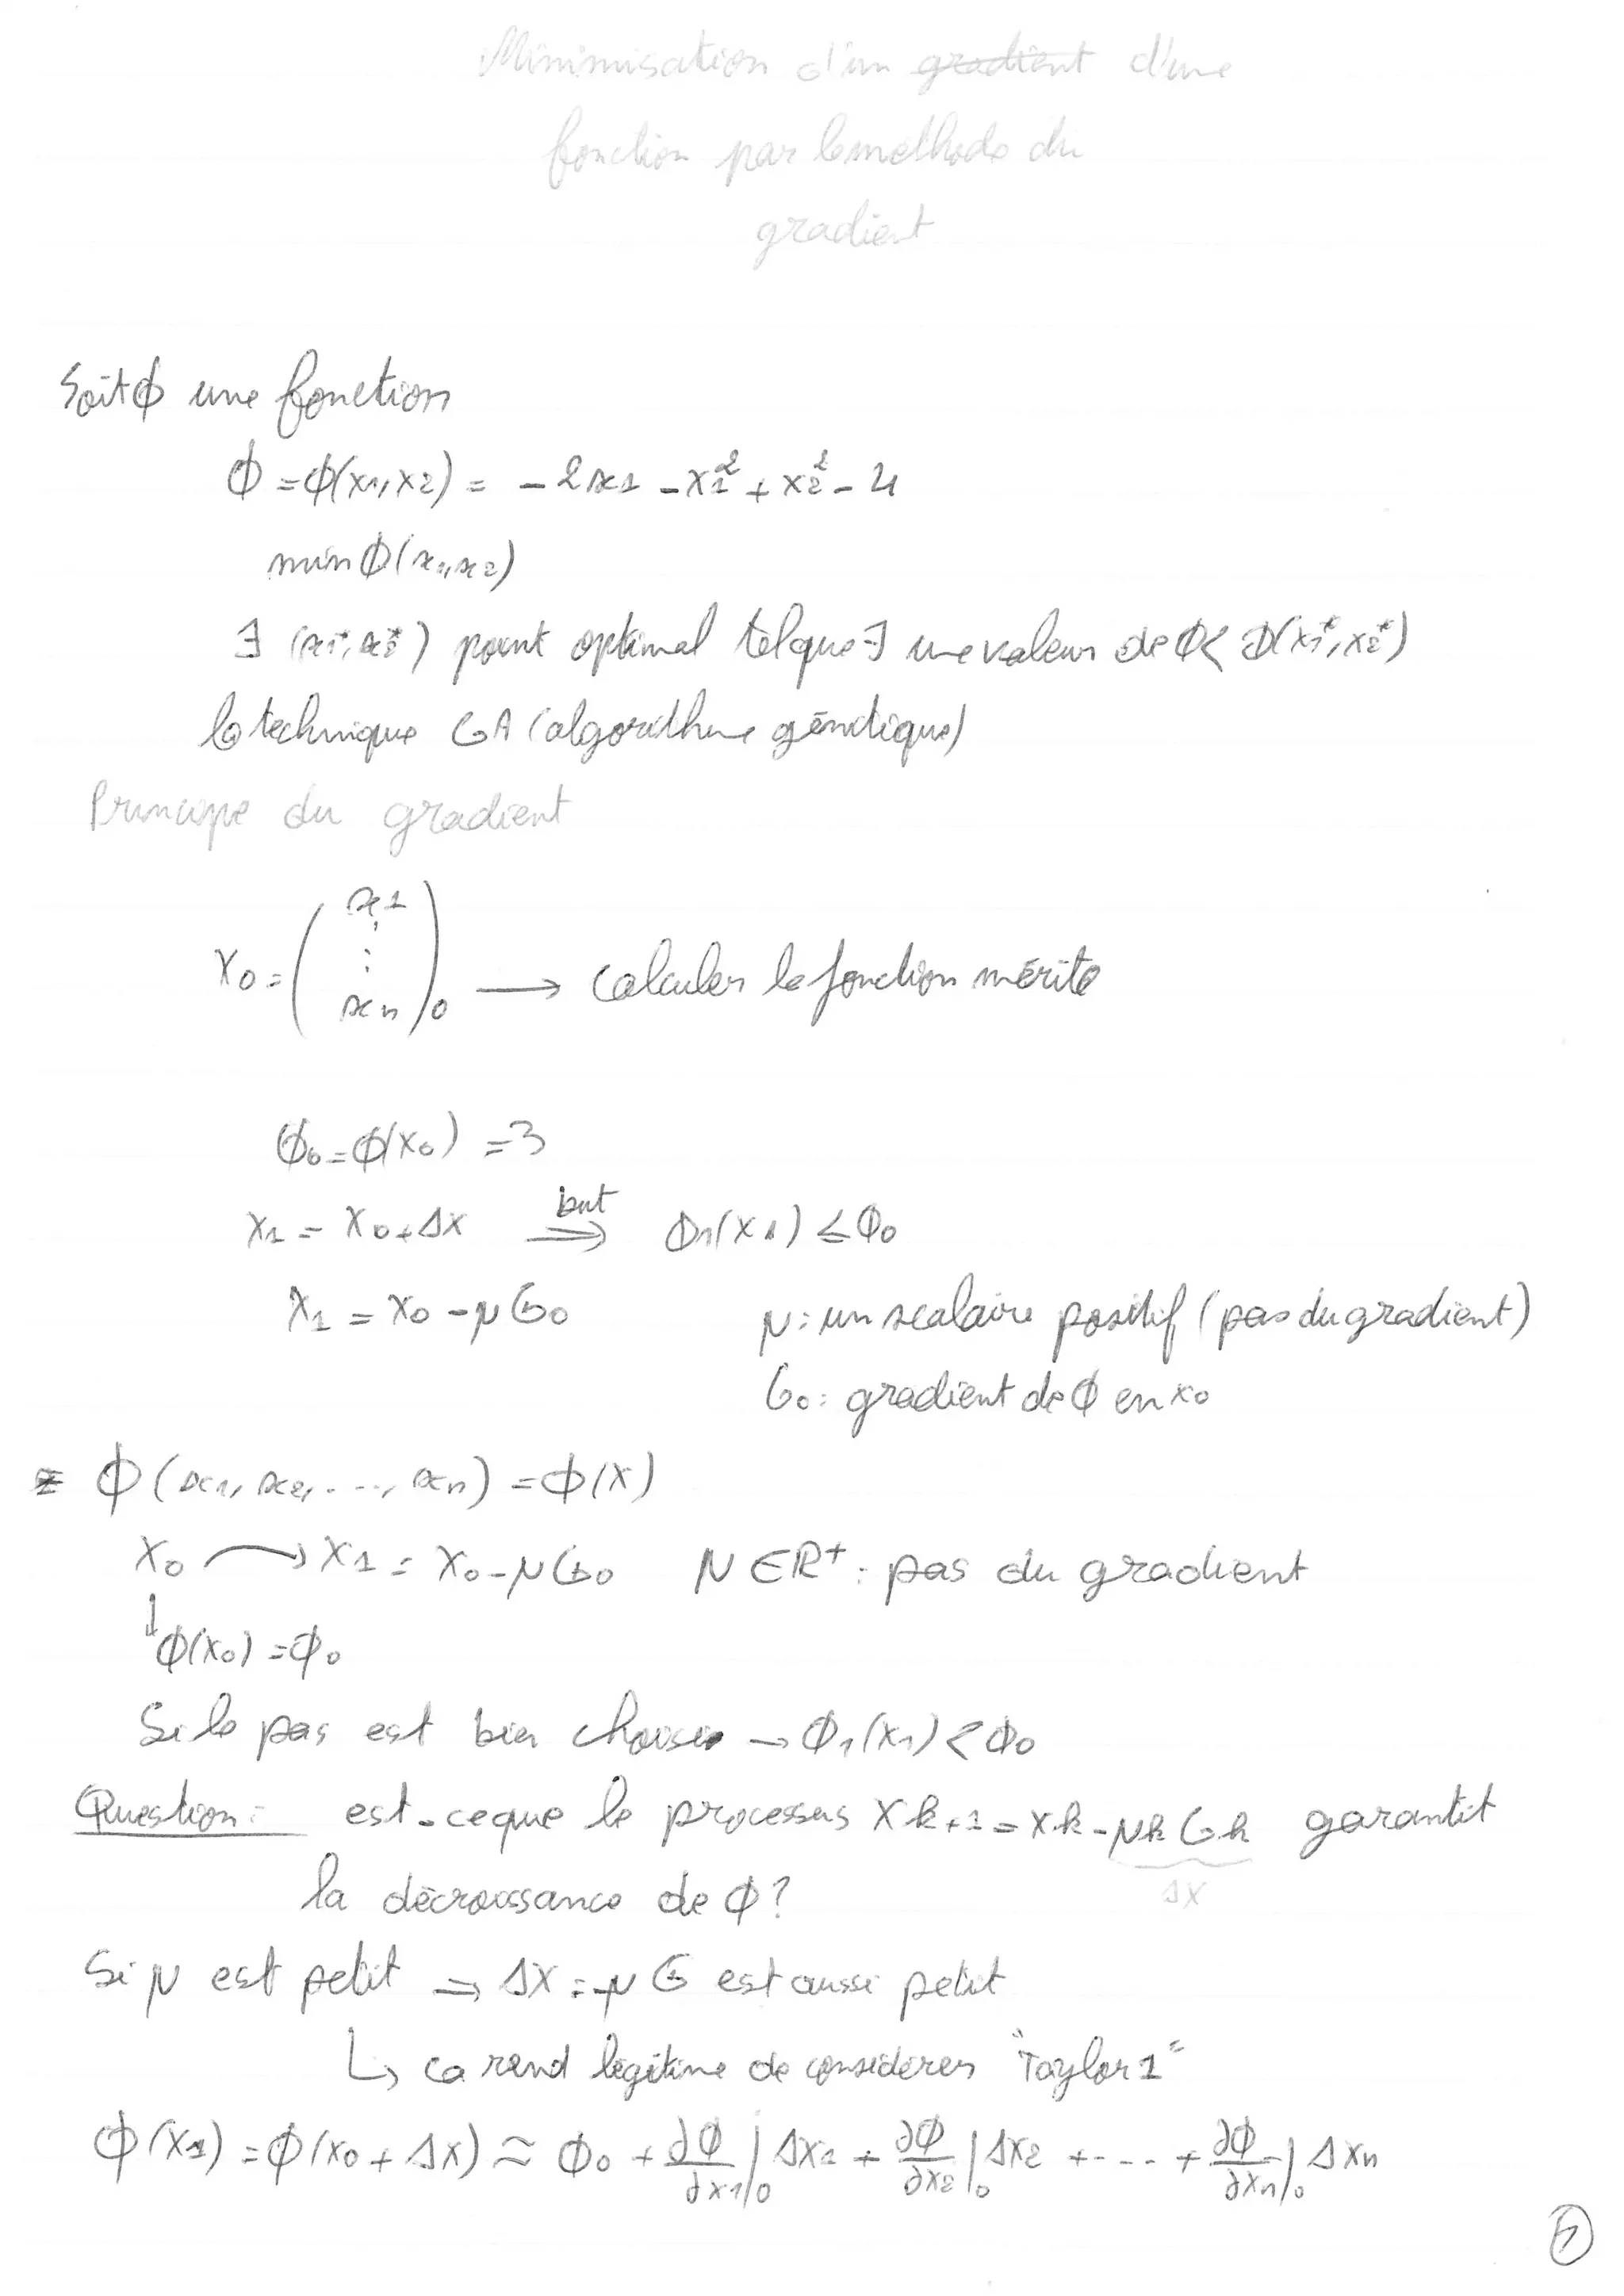 Minimisation d'un gradient d'une
fonction par la methode du
gradient
Soit ϕ une fonction
ϕ = ϕ(x1, x2) = -2x1 - x1² + x2² - 4
min ϕ(x1, x2)
∃ (x1*, x2*) point optimal tel que ∄ une valeur de ϕ < ϕ(x1*, x2*)
la technique GA (algorithme génétique)
Principe du gradient
X0 = (x1 ⋮ xn)0 → calculer la fonction mérite
ϕ0 = ϕ(X0) = 3
X1 = X0 + ΔX but ⇒ ϕ1(X1) ≤ ϕ0
X1 = X0 - μG0 μ : un scalaire positif (pas du gradient)
G0 : gradient de ϕ en x0
ϕ(x1, x2, ..., xn) = ϕ(X)
X0 → X1 = X0 - μG0 μ ∈ R+ : pas du gradient
↓ ϕ(X0) = ϕ0
Si le pas est bien choisi → ϕ1(X1) < ϕ0
Question : est-ce que le processus Xk+1 = Xk - μk Gk garantit
ΔX
la décroissance de ϕ ?
Si μ est petit ⇒ ΔX = -μ G est aussi petit
↳ ca rend légitime de considérer "Taylor 1"
ϕ(X1) = ϕ(X0 + ΔX) ≈ ϕ0 + ∂ϕ/∂x1|0 Δx1 + ∂ϕ/∂x2|0 Δx2 + --- + ∂ϕ/∂xn|0 Δxn